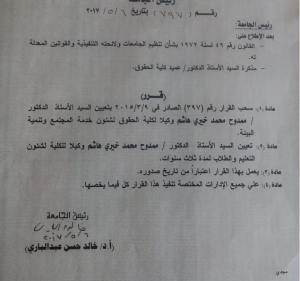 رئيس الجامعة
رقــم ( ٧٩٧ ) بتاريخ ٢٠١٧/٥/٦
رئيس الجامعة
بعد الإطلاع على:
- القانون رقم ٤٩ لسنة ١٩٧٢ بشأن تنظيم الجامعات ولائحته التنفيذية والقوانين المعدلة
له.
- مذكرة السيد الأستاذ الدكتور/ عميد كلية الحقوق.
(قــرر)
مادة ١: سحب القرار رقم (٣٩٧) الصادر في ٢٠١٥/٣/٩ بتعيين السيد الأستاذ الدكتور
/ ممدوح محمد خيري هاشم وكيلا لكلية الحقوق لشئون خدمة المجتمع وتنمية
البيئة.
مادة ٢: تعيين السيد الأستاذ الدكتور / ممدوح محمد خيري هاشم وكيلا للكلية لشئون
التعليم والطلاب لمدة ثلاث سنوات.
مادة ٣: يعمل بهذا القرار اعتباراً من تاريخ صدوره.
مادة ٤: علي جميع الإدارات المختصة تنفيذ هذا القرار كل فيما يخصها.
رئيس الجامعة
أ.د/ خالد حسن عبدالباري
مجدي